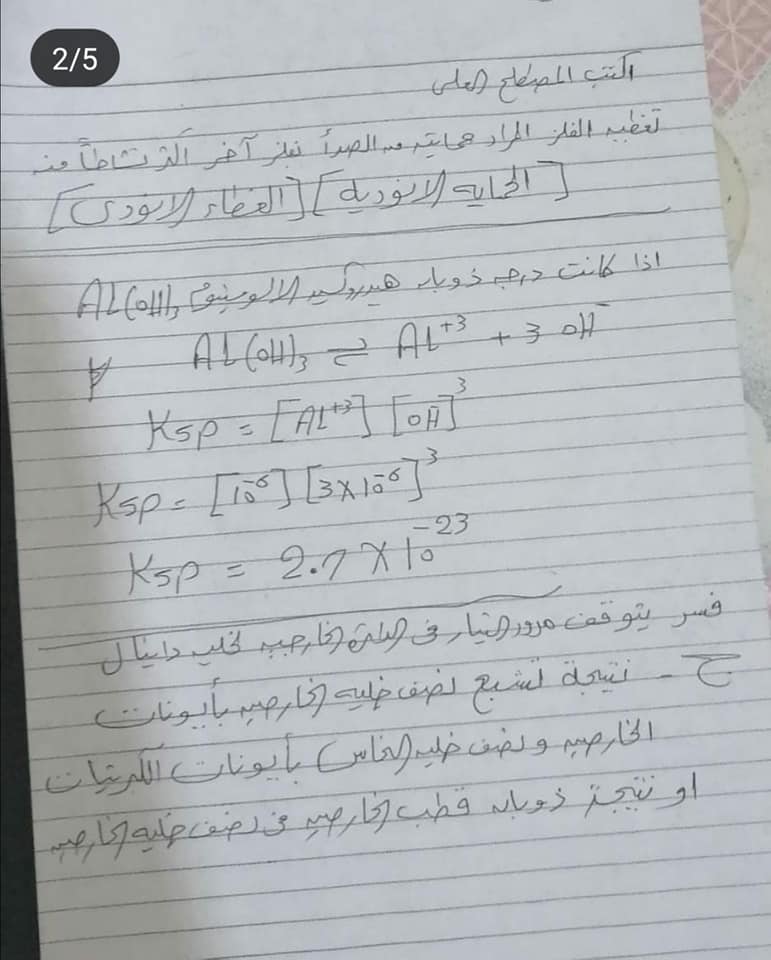 2/5
اكتب المصطلح العلمى
تغطيه الفلز المراد حمايته من الصدأ بفلز آخر اكثر نشاطاً منه
[الحمايه الانوديه] [الغطاء الانودى]
اذا كانت درجه ذوبان هيدروكسيد الالومنيوم Al(OH)3
Al(OH)3 ⇌ Al+3 + 3 OH-
Ksp = [Al+3] [OH-]3
Ksp = [10-6] [3x10-6]3
Ksp = 2.7 X 10-23
فسر يتوقف مرور التيار فى الدائرة الخارجيه لخليه دانيال
ج - نتيجة تشبع نصف خليه الخارصين بأيونات
الخارصين و نصف خليه النحاس بأيونات الكبريتات
او نتيجة ذوبان قطب الخارصين فى نصف خليه الخارصين